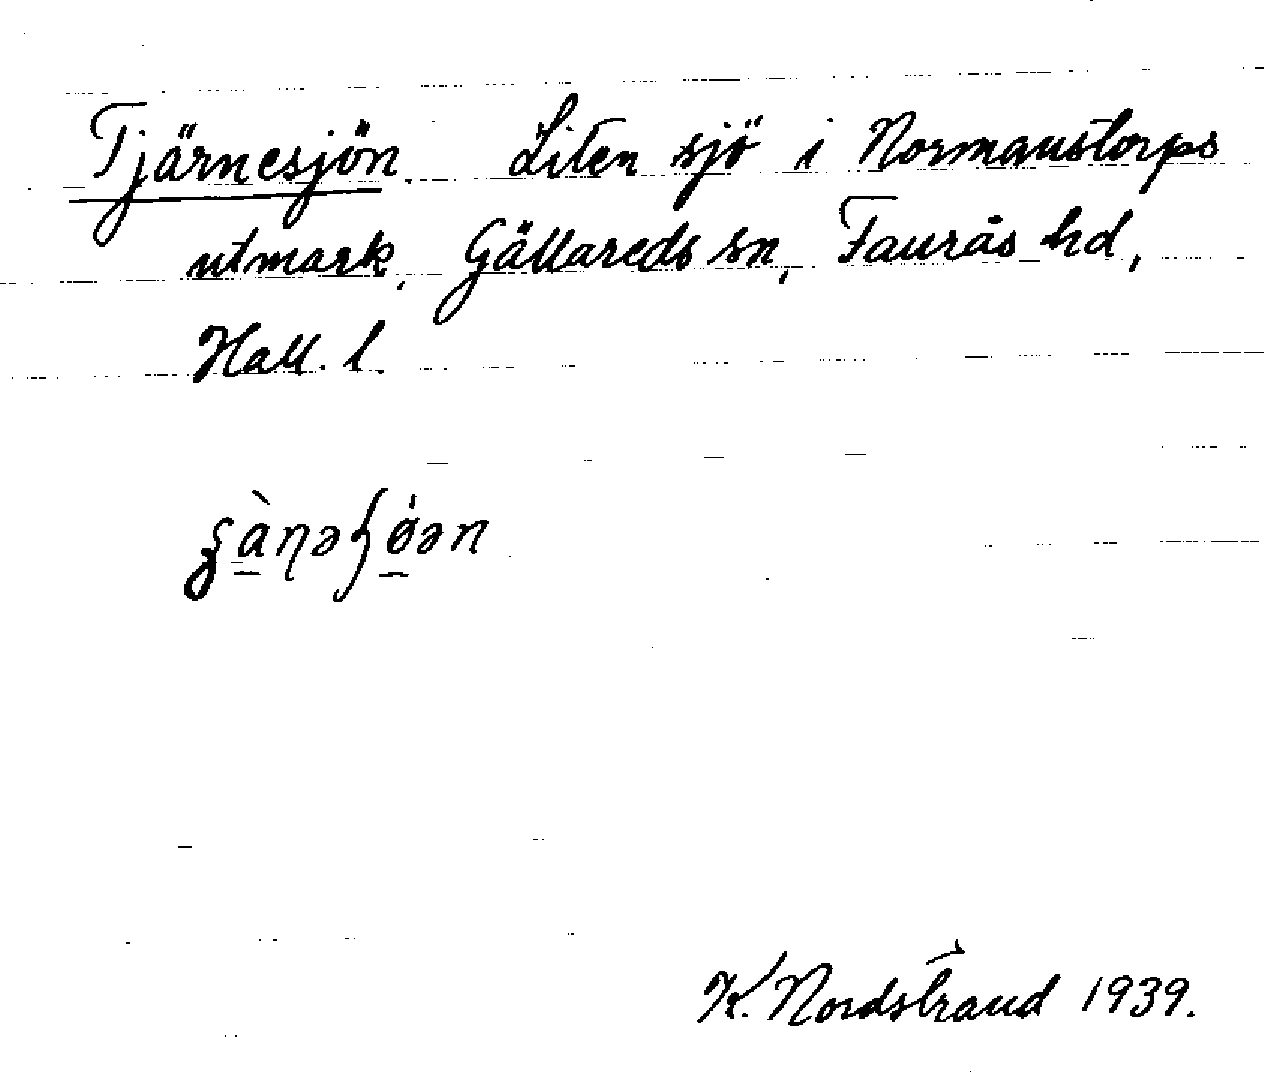 Tjärnesjön. Liten sjö i Normanstorps
utmark, Gällareds sn, Faurås hd,
Hall. l.
K. Nordstrand 1939.